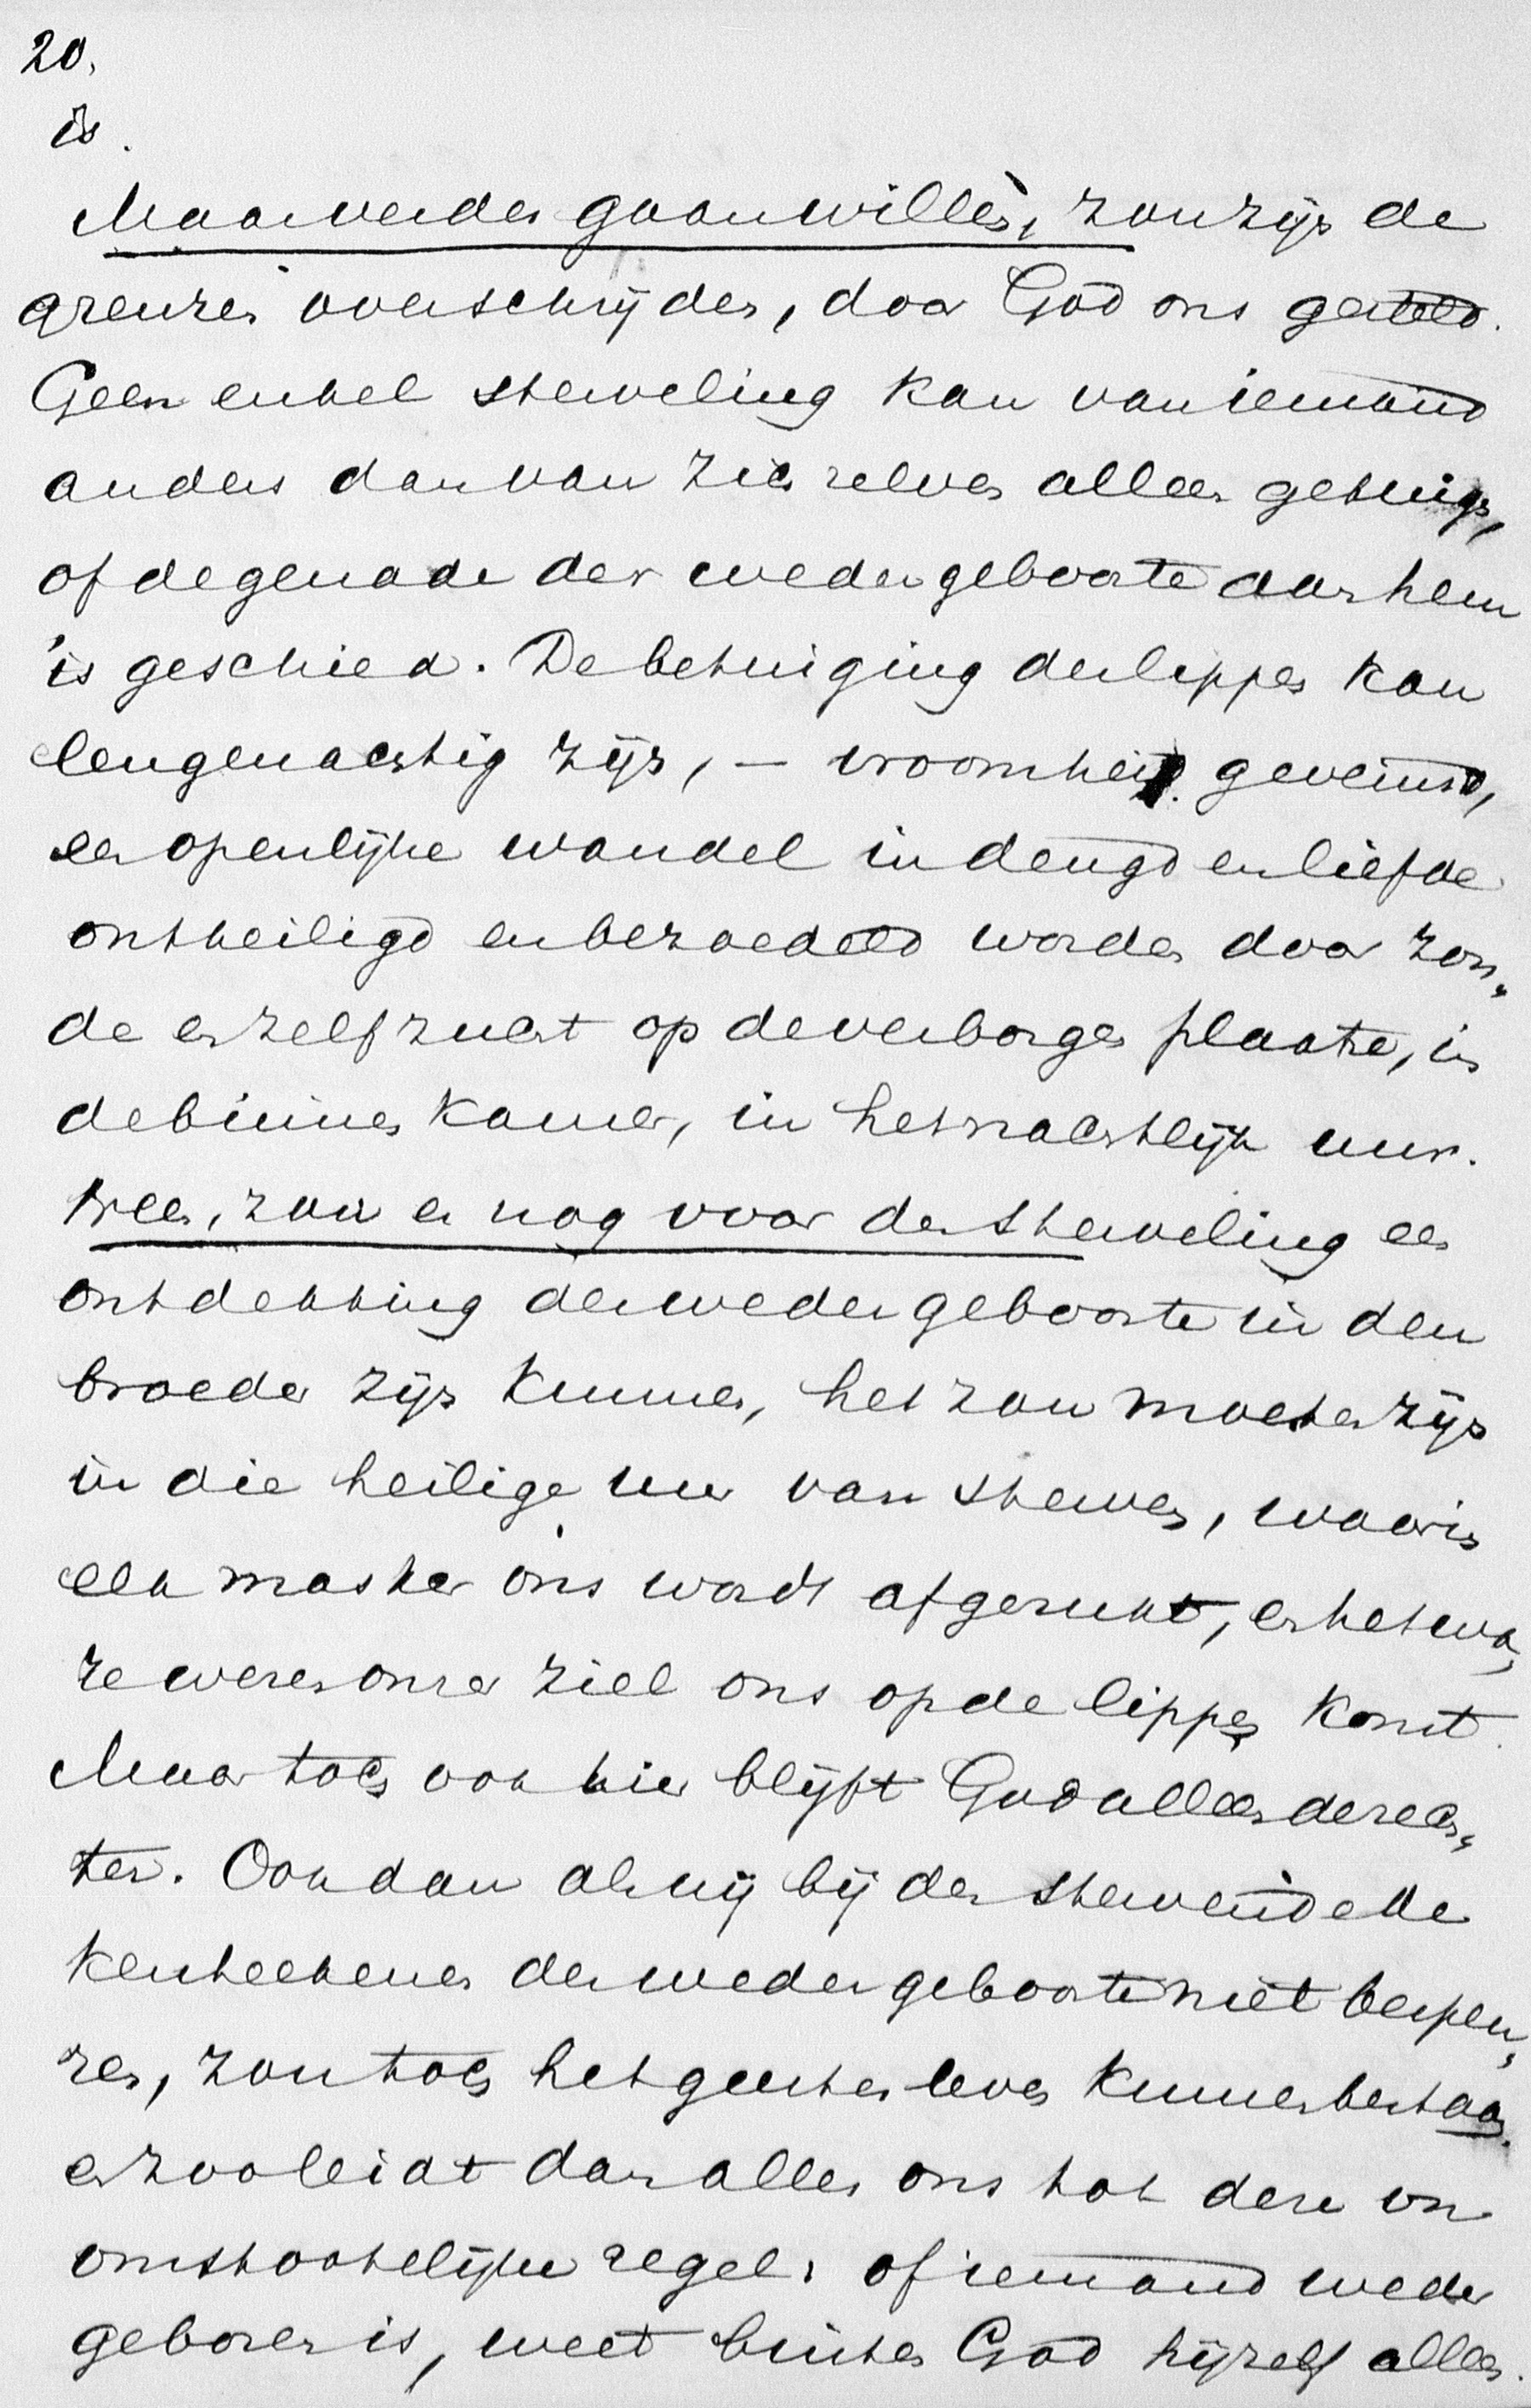 20.
is.
Maar verder gaan willen, zou zijn de
grenzen overschrijden, door God ons gesteld.
Geen enkel sterveling kan van iemand
anders dan van zich zelven alleen getuigen,
of de genade der wedergeboorte aan hem
is geschied. De betuiging der lippen kan
leugenachtig zijn, – vroomheid geveinsd,
een openlijke wandel in deugd en liefde
ontheiligd en bezoedeld worden door zon„
de en zelfzucht op de verborgen plaatse, in
de binnenkamer, in het nachtlijk uur.
Neen, zou er nog voor den sterveling een
ontdekking der wedergeboorte in den
broeder zijn kunnen, het zou moeten zijn
in die heilige ure van sterven, waarin
elk masker ons wordt afgerukt, en het wa„
re wezen onzer ziel ons op de lippen komt.
Maar toch ook hier blijft God alleen de rech„
ter. Ook dan als wij bij den stervende de
kenteekenen der wedergeboorte niet bespeu„
ren, zou toch het geestesleven kunnen bestaan.
en zoo leidt dan alles ons tot deze on
omstootelijke regel: of iemand weder
geboren is, weet buiten God hijzelf alleen.